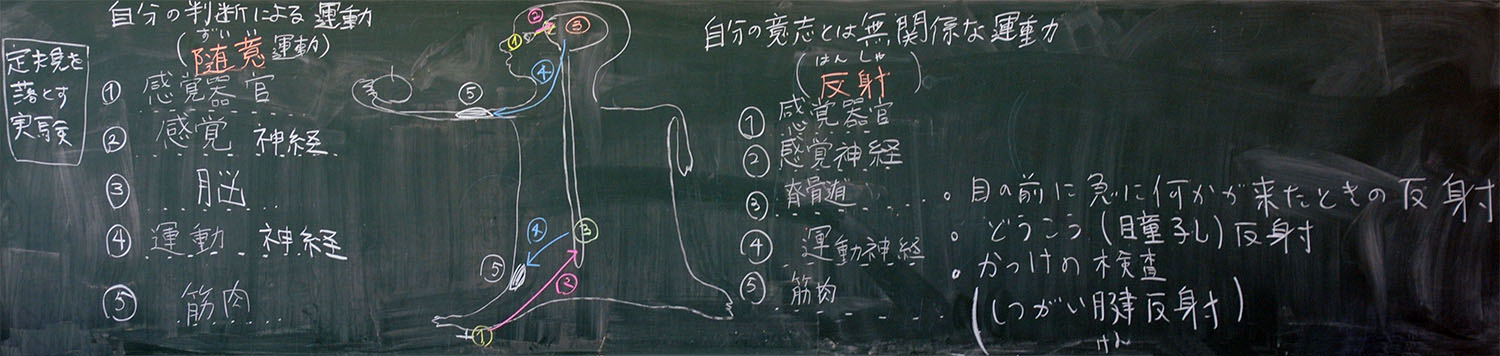 定規を
落とす
実験
自分の判断による運動
ずい い
(随意運動)
① 感覚器官
② 感覚 神経
③ 脳
④ 運動 神経
⑤ 筋肉
②
①
③
④
⑤
④
③
⑤
②
①
自分の意志とは無関係な運動
はんしゃ
(反射)
① 感覚器官
② 感覚神経
③ 脊骨道
④ 運動神経
⑤ 筋肉
。目の前に急に何かが来たときの反射
。どうこう(瞳孔)反射
。かっけの検査
(しつがい腱反射)
けん